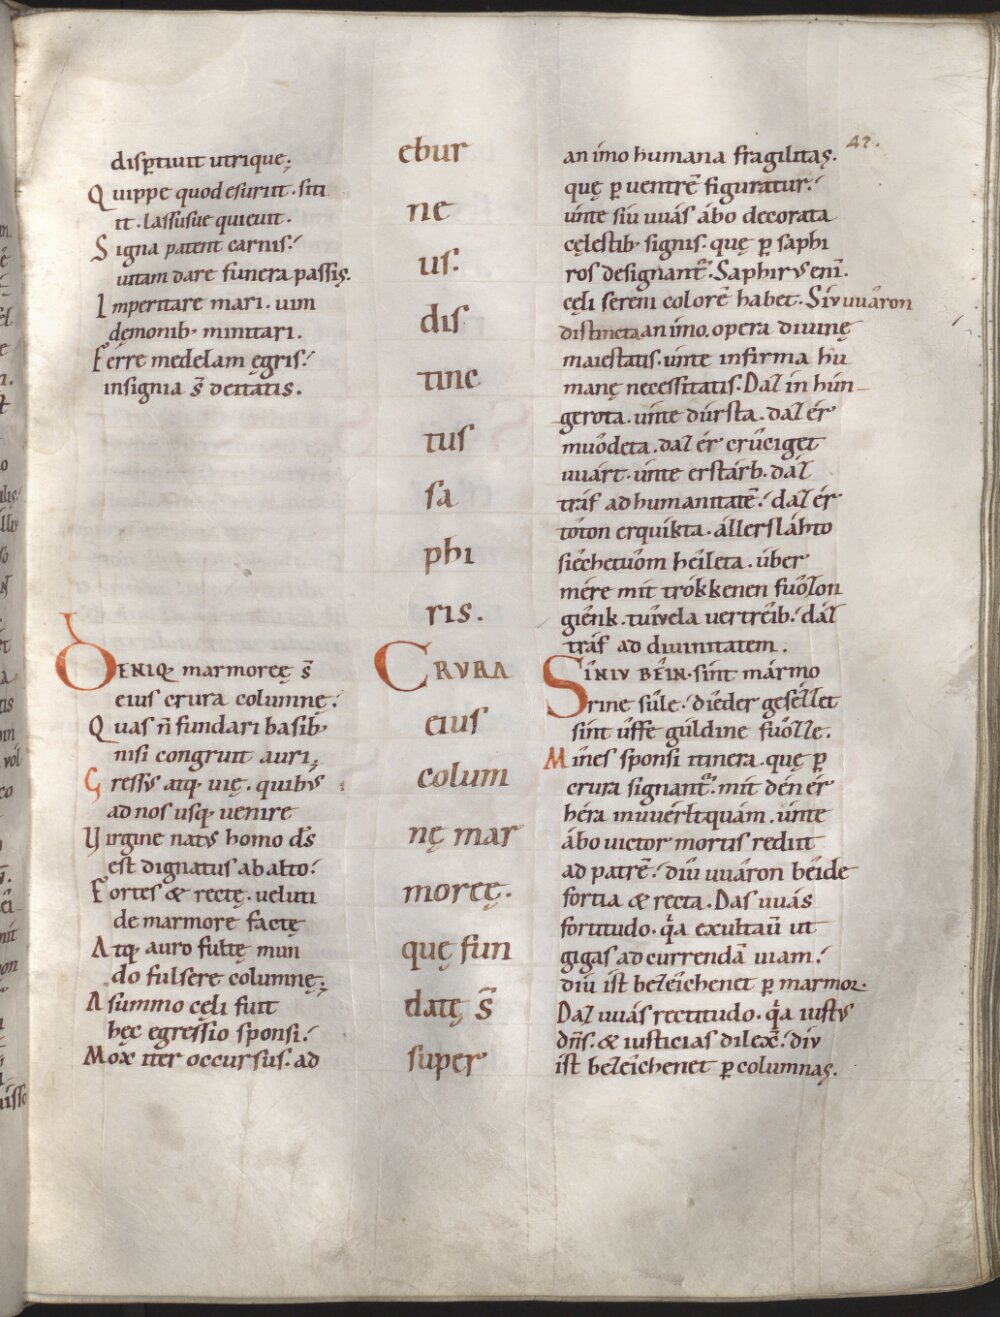 42.
disꝑtiuit utrique;
Quippe quod esuriit. siti
it. lassusue quieuit.
Signa patent carnis.
uitam dare funera passis.
Imperitare mari. uim
dęmonib; minitari.
Ferre medelam ęgris.
insignia s̄ deitatis.
DENIQ; marmoreę s̄
eius crura columnę.
Quas n̄ fundari basib;
nisi congruit auri.
Gressus atq; uię. quibus
ad nos usq; uenire
Virgine natus homo d̄s
est dignatus ab alto.
Fortes & rectę. ueluti
de marmore factę
Atq; auro fultę mun
do fulsere columnę;
A summo cęli fuit
hęc egressio sponsi.
Mox iter occursus. ad
ebur
ne
us.
dis
tinc
tus
sa
phi
ris.
CRVRA
eius
colum
nę mar
moreę.
quę fun
datę s̄
super
an imo humana fragilitas.
quę ꝑ uentrē figuratur.
únte sín uuás ábo decorata
cęlestib; signis. quę ꝑ saphi
ros designant᷑. Saphirus enī.
cęli sereni colorē habet. Sív uuáron
distincta an ímo. opera diuinę
maiestatis. únte infirma hu
manę necessitatis. Daz in hún
gerota. únte dúrsta. dáz ér
muódeta. dáz ér crûciget
uuárt. únte erstárb. dáz
tráf ad humanitatē. dáz ér
tôton erquíkta. állersláhto
siéchetuôm heíleta. úber
mére mit trókkenen fuôzon
giénk. tuívela uertreíb. dáz
tráf ad diuinitatem.
SÍNIV BEÍN. sint mármo
rine sûle. diéder gesézzet
sínt ûffe gúldine fuôzze.
Mînes sponsi itinera. quę ꝑ
crura signant᷑. mit dén ér
héra in uuérlt quám. únte
ábo uictor mortis rediit
ad patrē. díu uuâron béide
fortia & recta. Das uuás
fortitudo. qͥa exultauit ut
gigas ad currendā uiam.
díu ist bezeíchenet ꝑ marmor.
Daz uuás rectitudo. qͥa iustus
dn̄s. & iusticias dilex̄. dív
íst bezeíchenet ꝑ columnas.